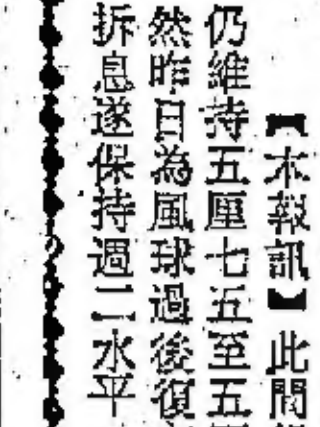 【本報訊】此間
仍維持五厘七五至五
然昨日為風球過後復
拆息遂保持週二水平